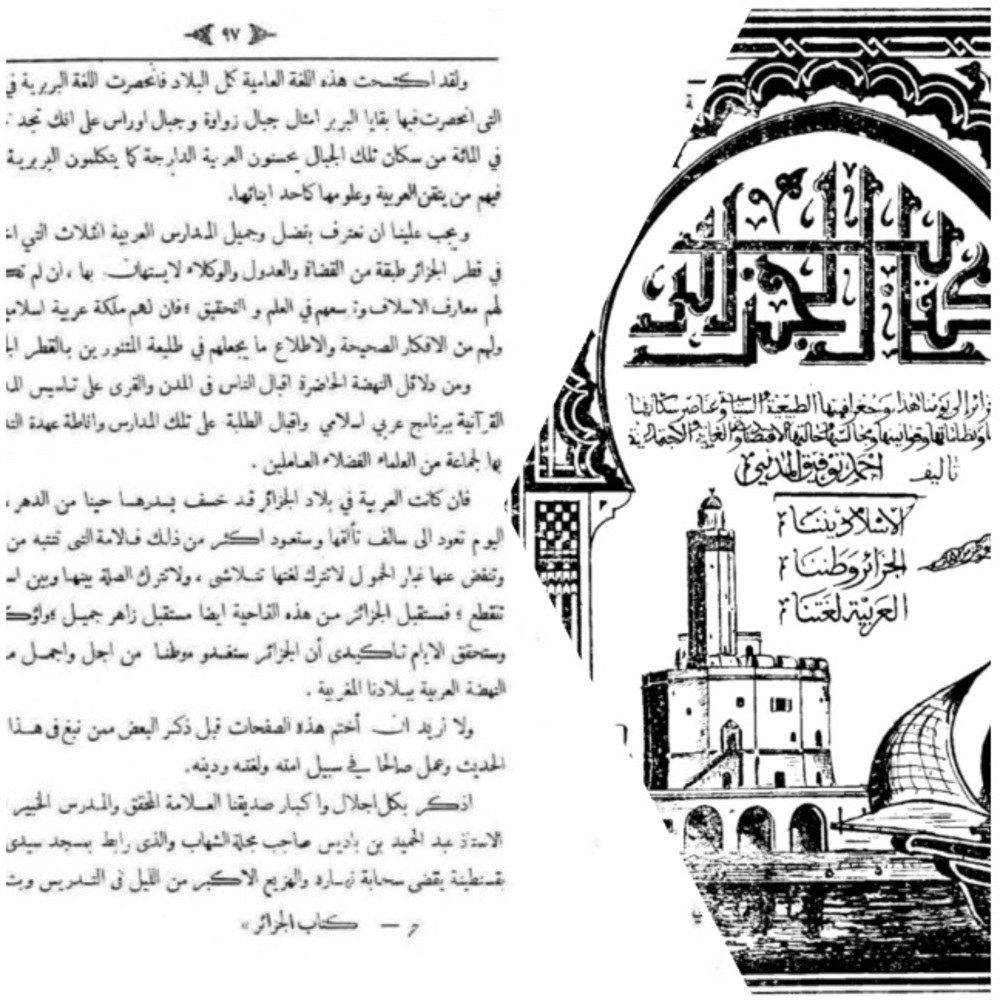 ٩٧
ولقد اكتسحت هذه اللغة العامية كل البلاد فانحصرت اللغة البربرية في
التى انحصرت فيها بقايا البربر امثال جبال زواوة وجبال اوراس على انك تجد
في المائة من سكان تلك الجبال يحسنون العربية الدارجة كما يتكلمون البربرية
فيهم من يتقن العربية وعلومها كاحد ابنائها.
ويجب علينا ان نعترف بفضل وجميل المدارس العربية الثلاث التي
في قطر الجزائر طبقة من القضاة والعدول والوكلاء لايستهان بها ، ان لم
لهم معارف الاسلاف وتوسعهم في العلم و التحقيق ؛ فان لهم ملكة عربية
ولهم من الافكار الصحيحة والاطلاع ما يجعلهم في طليعة المتنورين بالقطر
ومن دلائل النهضة الحاضرة اقبال الناس فى المدن والقرى على تاسيس
القرآنية ببرنامج عربي اسلامي واقبال الطلبة على تلك المدارس واناطة عهدة
بها لجماعة من العلماء الفضلاء العاملين .
فان كانت العربية في بلاد الجزائر قد خسف بدرها حينا من الدهر
اليوم تعود الى سالف تألقها وستعود اكثر من ذلك فالامة التى تنتبه من
وتنفض عنها غبار الخمول لاتترك لغتها تتلاشى ، ولاتترك الصلة بينها وبين
تنقطع ؛ فمستقبل الجزائر من هذه الناحية ايضا مستقبل زاهر جميل ؛
وستحقق الايام تاكيدى أن الجزائر ستغدو موطنا من اجل واجمل
النهضة العربية ببلادنا المغربية .
ولا اريد ان أختم هذه الصفحات قبل ذكر البعض ممن نبغ فى هذا
الحديث وعمل صالحا في سبيل امته ولغته ودينه.
اذكر بكل اجلال واكبار صديقنا العلامة المحقق والمدرس الخبير
الاستاذ عبد الحميد بن باديس صاحب مجلة الشهاب والذى رابط بمسجد سيدى
بقسنطينة يقضى سحابة نهاره والهزيع الاكبر من الليل فى التدريس
م — كتاب الجزائر »
كتاب الجزائر
هذا، وجغرافيتها الطبيعية والسياسية وعناصر سكانها
تأليف أحمد توفيق المدني
الإسلام ديننا
الجزائر وطننا
العربية لغتنا